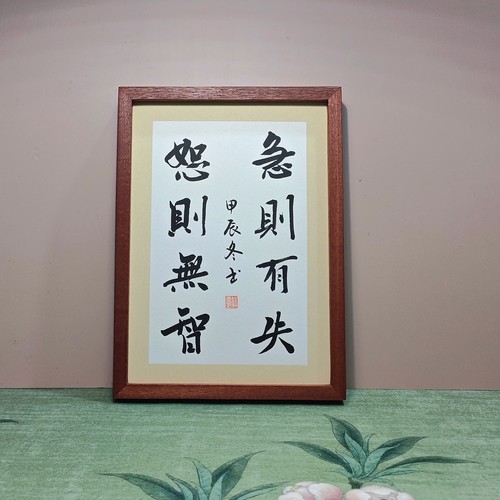 急則有失
恕則無智
甲辰冬书